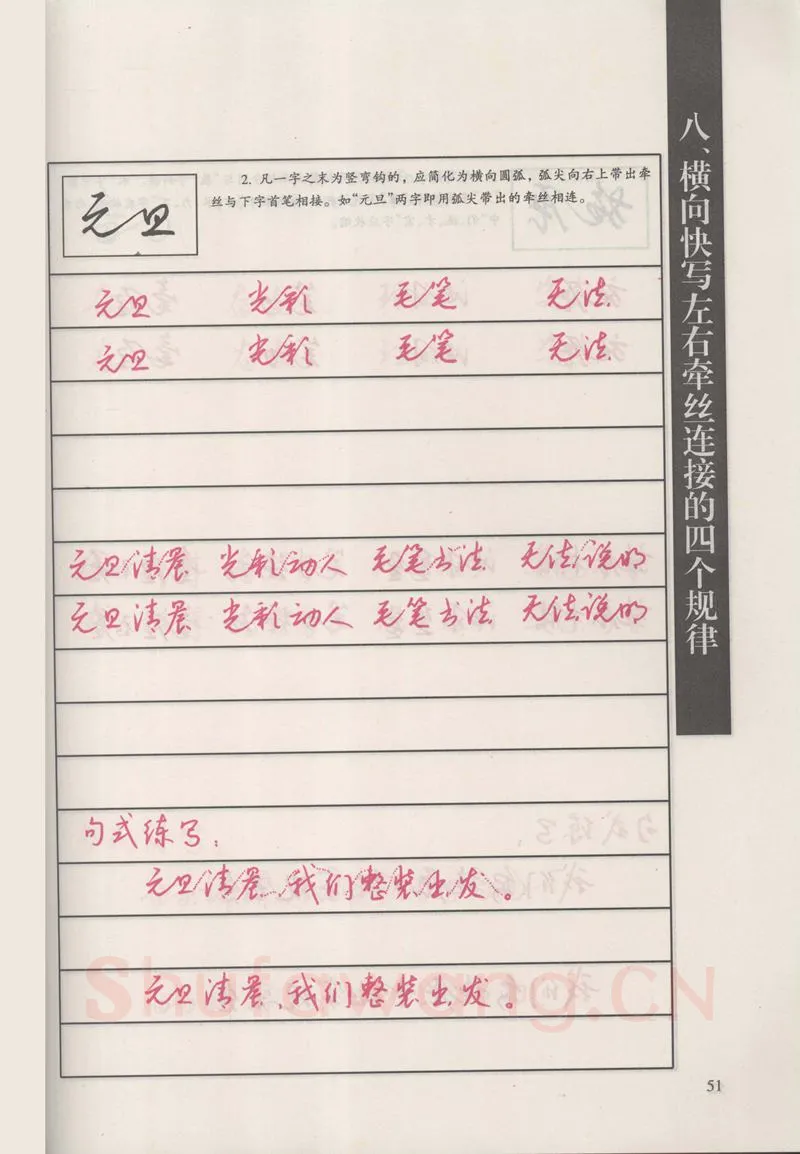 八、横向快写左右牵丝连接的四个规律
元旦
2. 凡一字之末为竖弯钩的，应简化为横向圆弧，弧尖向右上带出牵
丝与下字首笔相接。如“元旦”两字即用弧尖带出的牵丝相连。
元旦 光彩 毛笔 无法
元旦 光彩 毛笔 无法
元旦清晨 光彩动人 毛笔书法 无法说明
元旦清晨 光彩动人 毛笔书法 无法说明
句式练写：
元旦清晨，我们整装出发。
元旦清晨，我们整装出发。
Shufawang.CN
51